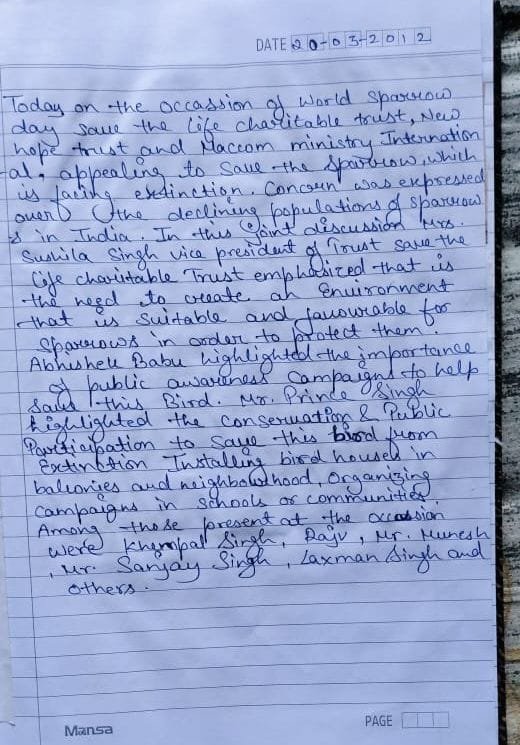 DATE 20-03-2012
Today on the occassion of World Sparrow
day save the life charitable trust, New
hope trust and Maccom ministry Internation
-al, appealing to save the sparrow, which
is facing extinction. Concern was expressed
over the declining populations of sparrow
s in India. In this joint discussion Mrs.
Sushila Singh vice president of Trust save the
life charitable Trust emphasized that is
the need to create an Environment
that is suitable and favourable for
sparrows in order to protect them.
Abhishek Babu highlighted the importance
of public awareness campaigns to help
save this Bird. Mr. Prince Singh
highlighted the conservation & Public
Participation to save this bird from
Extinction Installing bird houses in
balconies and neighbourhood, Organizing
campaigns in schools or communities.
Among those present at the occasion
were Khempal Singh, Raju, Mr. Munesh
, Mr. Sanjay Singh, Laxman Singh and
others.
Mansa
PAGE